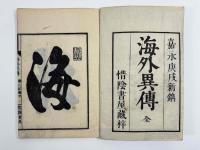 嘉永庚戌新鐫
海外異傳 全
惜陰書屋藏梓
海